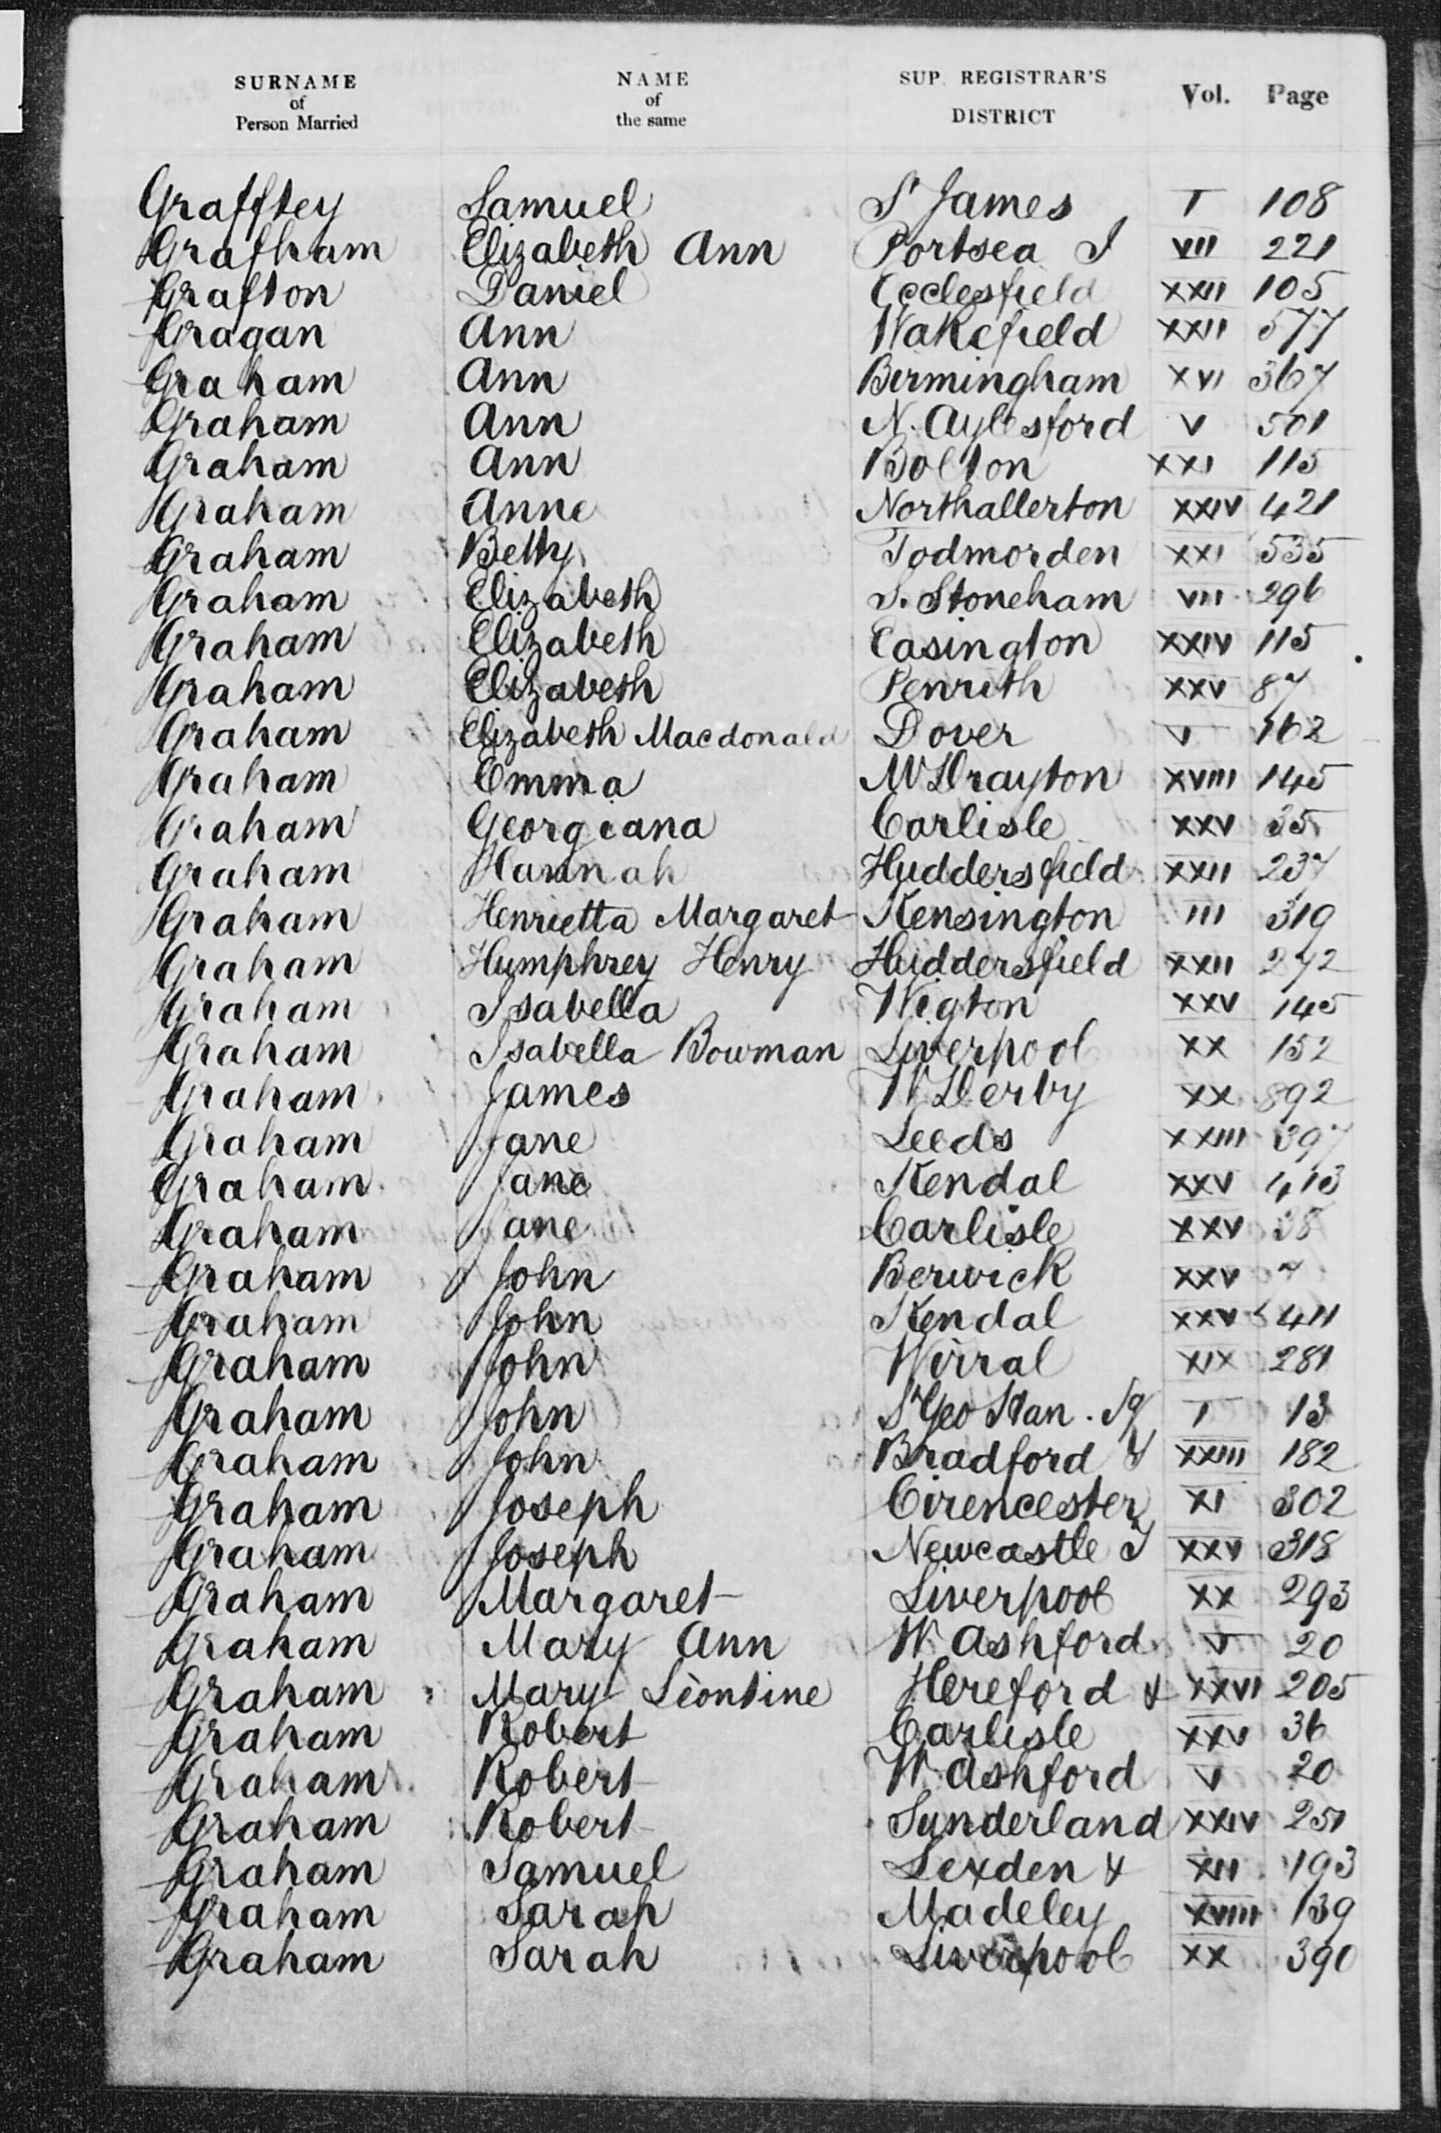 SURNAME of Person Married NAME of the same SUP. REGISTRAR'S DISTRICT Vol. Page
Graffsey Samuel St James I 108
Grafham Elizabeth Ann Portsea I VII 221
Grafton Daniel Ecclesfield XXII 105
Gragan Ann Wakefield XXII 577
Graham Ann Birmingham XVI 367
Graham Ann N. Aylesford V 501
Graham Ann Bolton XXI 115
Graham Anne Northallerton XXIV 421
Graham Betty Todmorden XXI 535
Graham Elizabeth S. Stoneham VII 296
Graham Elizabeth Easington XXIV 115
Graham Elizabeth Penrith XXV 87
Graham Elizabeth Macdonald Dover V 162
Graham Emma M Drayton XVIII 145
Graham Georgeana Carlisle XXV 35
Graham Hannah Huddersfield XXII 237
Graham Henrietta Margaret Kensington III 319
Graham Humphrey Henry Huddersfield XXII 272
Graham Isabella Wigton XXV 145
Graham Isabella Bowman Liverpool XX 152
Graham James W Derby XX 892
Graham Jane Leeds XXIII 397
Graham Jane Kendal XXV 413
Graham Jane Carlisle XXV 38
Graham John Berwick XXV 7
Graham John Kendal XXV 411
Graham John Wirral XIX 281
Graham John St Geo Han. Sq I 13
Graham John Bradford Y XXIII 182
Graham Joseph Cirencester XI 302
Graham Joseph Newcastle T XXV 318
Graham Margaret Liverpool XX 293
Graham Mary Ann W. Ashford V 20
Graham Mary Léontine Hereford & XXVI 205
Graham Robert Carlisle XXV 36
Graham Robert W. Ashford V 20
Graham Robert Sunderland XXIV 251
Graham Samuel Lexden & XII 193
Graham Sarah Madeley XVIII 139
Graham Sarah Liverpool XX 390